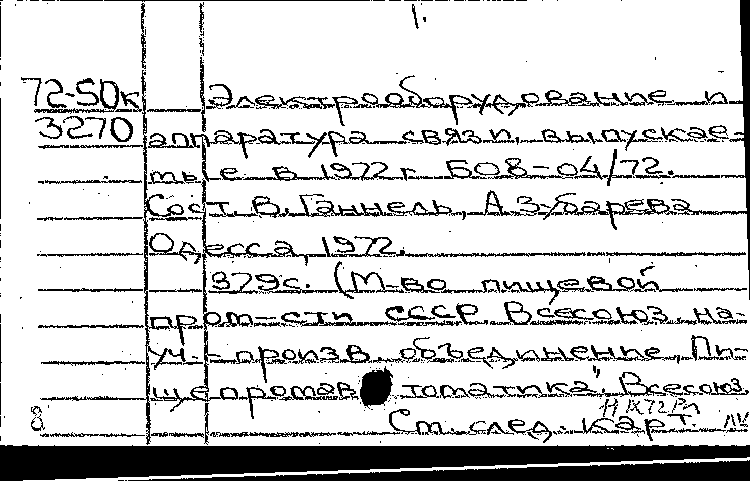 1.
72-50к Электрооборудование и
3270 аппаратура связи, выпускае-
мые в 1972 г. Б08-04/72.
Сост. В. Ганнель, А. Зубарева
Одесса, 1972.
379с. (М-во пищевой
пром-сти СССР. Всесоюз. на-
уч.-произв. объединение „Пи-
щепромавтоматика". Всесоюз.
11 IX 72
8 См. след. карт.